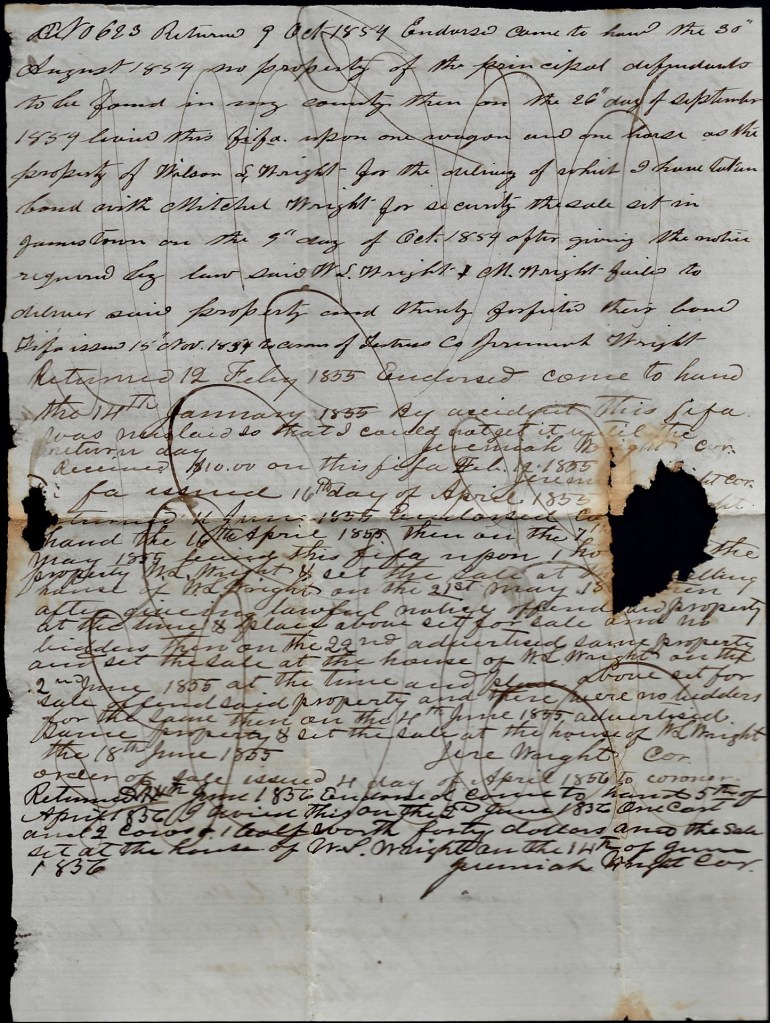 No 623 Returned 9 Oct 1854 Endorsed come to hand the 30"
August 1854 no property of the principal defendants
to be found in my county then on the 26" day of September
1854 levied this fifa. upon one wagon and one horse as the
property of Wilson L Wright for the delivery of which I have taken
bond with Mitchel Wright for security the sale set in
Jamestown on the 9" day of Oct. 1854 after giving the notice
required by law said W. L. Wright & M. Wright failed to
deliver said property and thereby forfeited their bond
Fifa issued 15" Nov. 1854 to coroner of Fentress Co Jeremiah Wright
Returned 12 Feby 1855 Endorsed come to hand
the 14th January 1855 By accident This fifa
was mislaid so that I could not get it until the
return day Jeremiah Wright cor.
Received $10.00 on this fifa Feb. 12. 1855
fa issued 16th day of April 1855
returned 4 June 1855 Endorsed
hand the 16th April 1855 then on the
May 1855 levied this fifa upon 1 the
property W. L. Wright & set the sale at
house of W L Wright on the 21st May
after giveing lawful notice offered said property
at the time & place above set for sale and no
bidders then on the 22nd advertised same property
and set the sale at the house of W L Wright on the
2nd June 1855 at the time and place above set for
sale offered said property and there were no bidders
for the same then on the 4th June 1855 advertised.
Same property & set the sale at the house of W L Wright
the 18th June 1855 Jere Wright Cor
order of sale issued 4 day of April 1856 to coroner.
Returned 14th June 1856 Endorsed Come to hand 5th of
April 1856 I levied this on the 2d June 1856 One Cart
and 2 Cows & 1 Calf worth forty dollars and the sale
set at the house of W. L. Wright on the 14th of June
1856 Jeremiah Wright Cor.